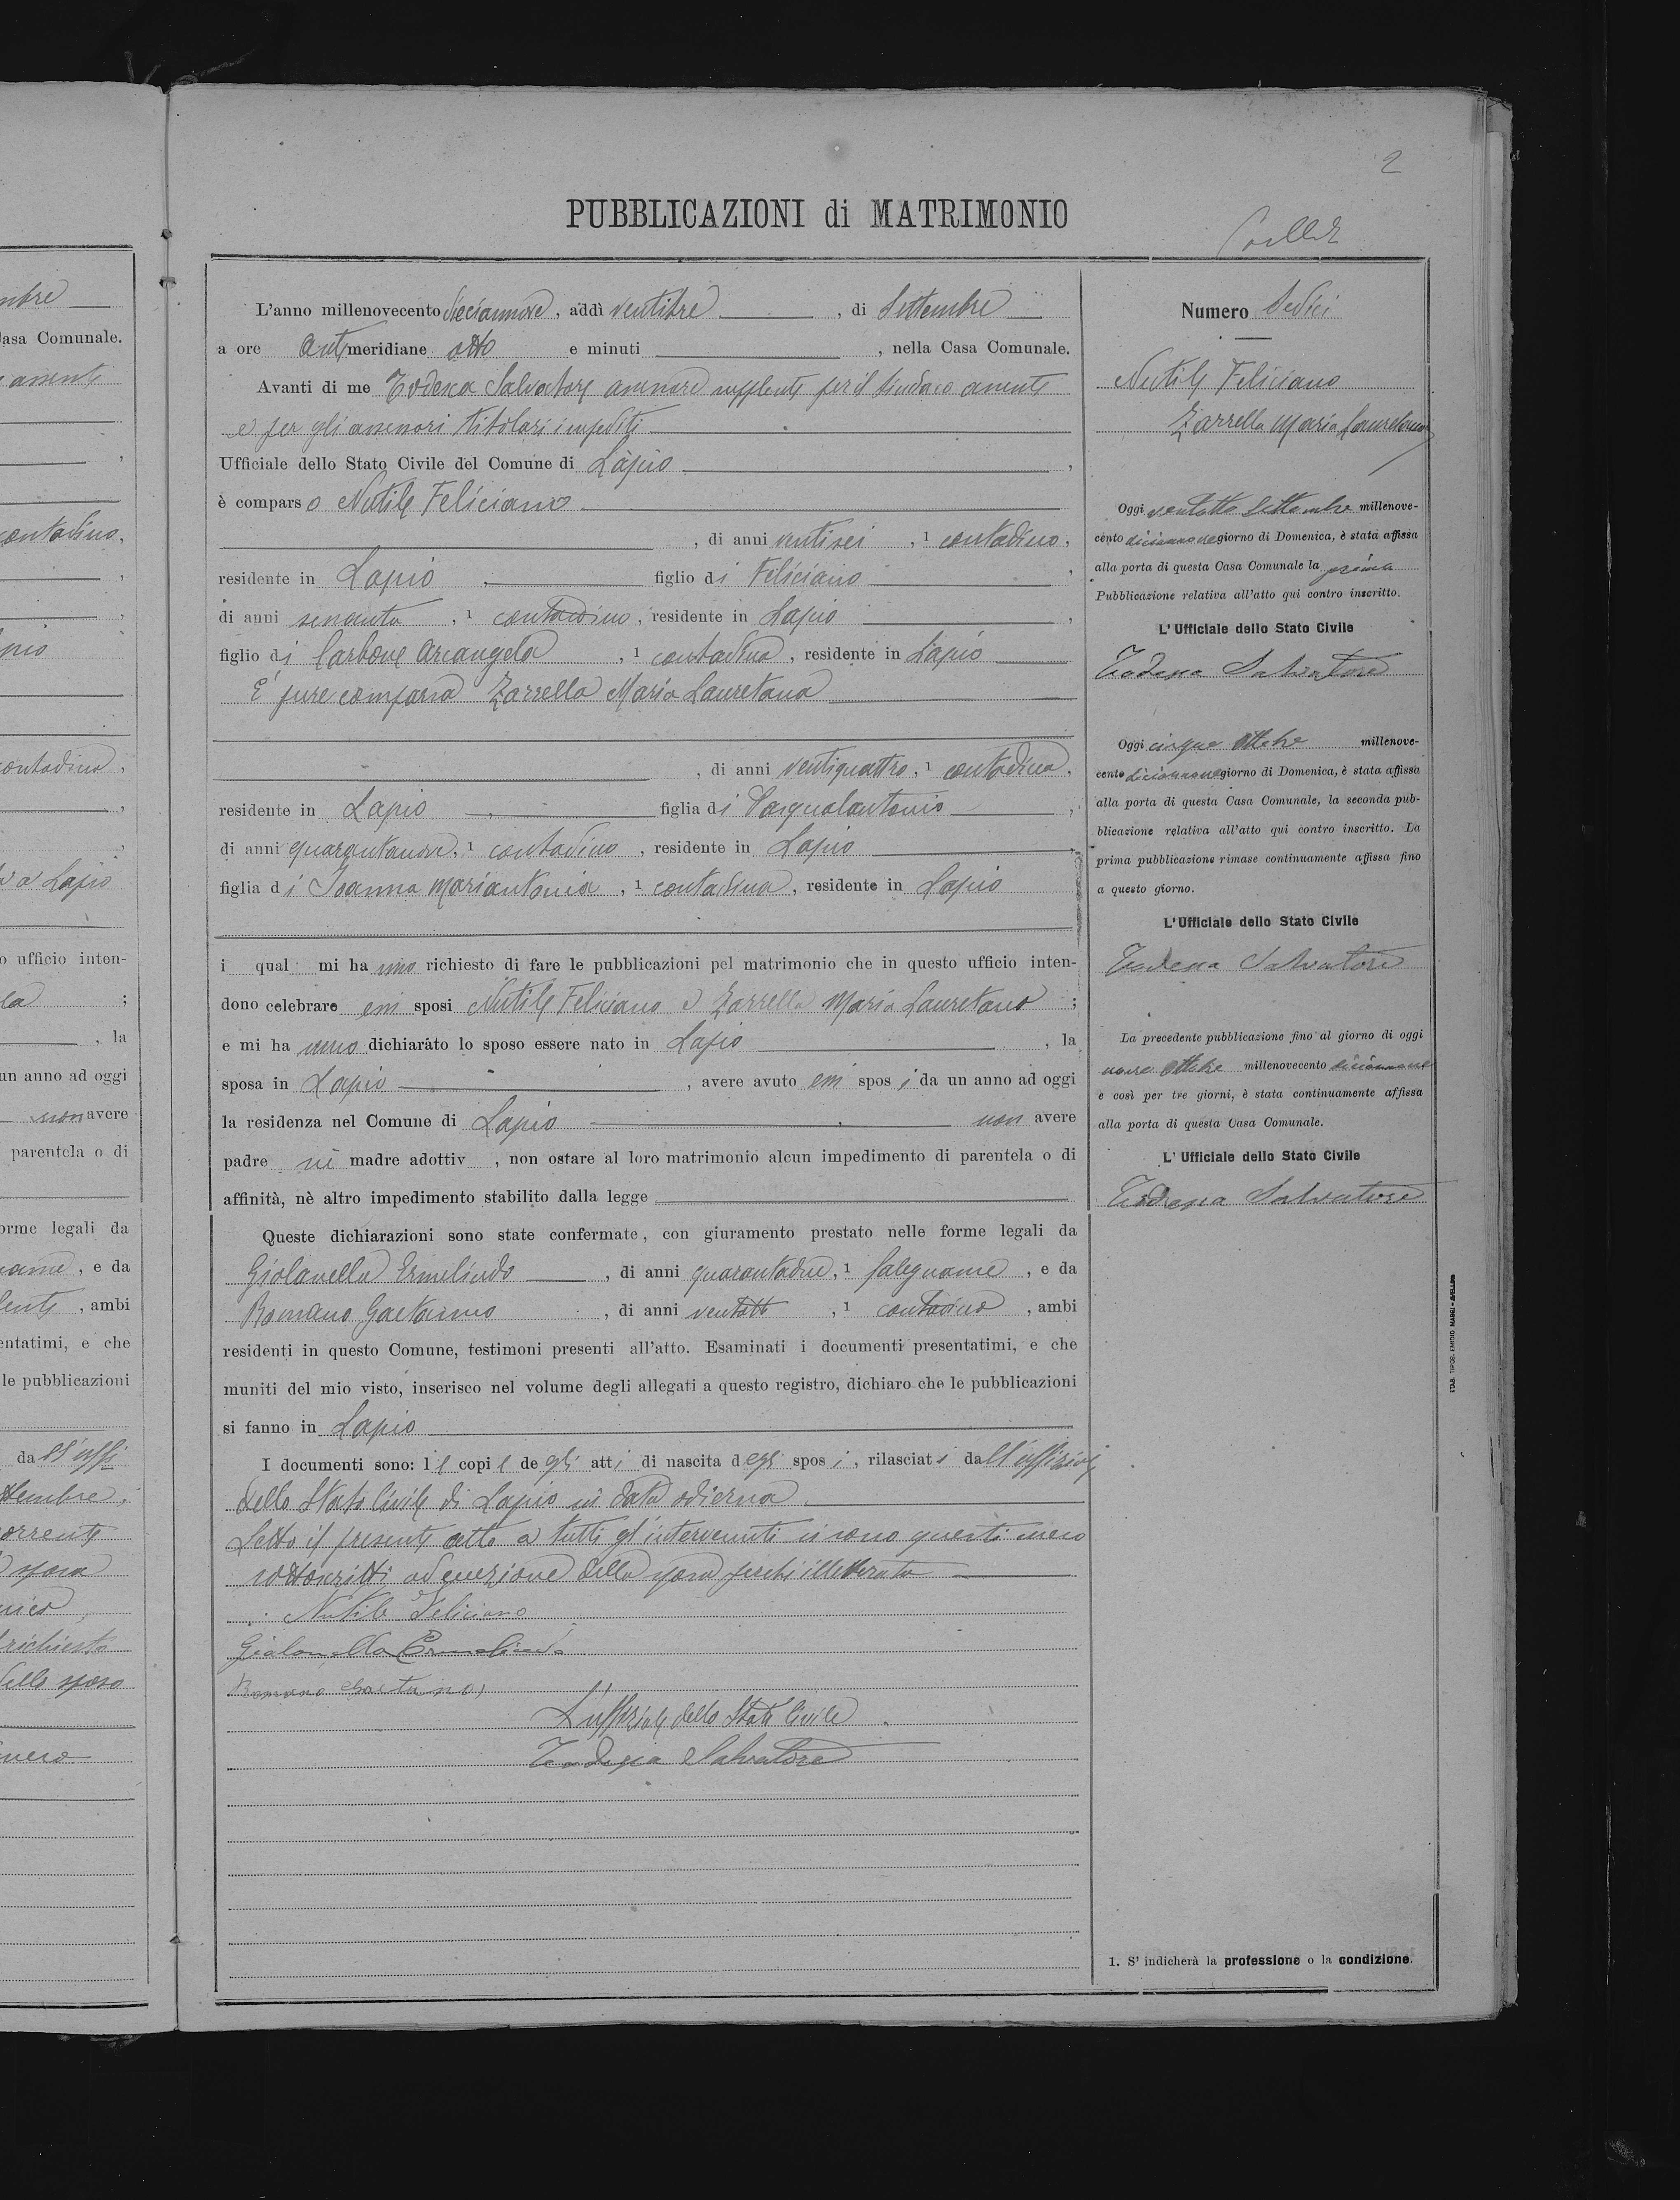 2
PUBBLICAZIONI di MATRIMONIO
L'anno millenovecento diciannove, addì ventitre, di Settembre
a ore antimeridiane otto e minuti , nella Casa Comunale.
Avanti di me Todesca Salvatore assessore supplente per il Sindaco assente
e per gli assessori titolari impediti
Ufficiale dello Stato Civile del Comune di Lapio,
è comparso Nutile Feliciano
, di anni ventisei, 1 contadino,
residente in Lapio, figlio di Feliciano,
di anni sessanta, 1 contadino, residente in Lapio,
figlio di Carbone Arcangela, 1 contadina, residente in Lapio
E' pure comparsa Zarrella Maria Lauretana
, di anni ventiquattro, 1 contadina,
residente in Lapio, figlia di Pasqualantonio,
di anni quarantanove, 1 contadino, residente in Lapio
figlia di Ioanna Mariantonia, 1 contadina, residente in Lapio
i qual mi hanno richiesto di fare le pubblicazioni pel matrimonio che in questo ufficio inten-
dono celebrare essi sposi Nutile Feliciano e Zarrella Maria Lauretana;
e mi hanno dichiarato lo sposo essere nato in Lapio, la
sposa in Lapio, avere avuto essi sposi da un anno ad oggi
la residenza nel Comune di Lapio non avere
padre nè madre adottiv , non ostare al loro matrimonio alcun impedimento di parentela o di
affinità, nè altro impedimento stabilito dalla legge
Queste dichiarazioni sono state confermate, con giuramento prestato nelle forme legali da
Giolanella Ermelindo, di anni quarantadue, 1 falegname, e da
Romano Gaetano, di anni ventotto, 1 contadino, ambi
residenti in questo Comune, testimoni presenti all'atto. Esaminati i documenti presentatimi, e che
muniti del mio visto, inserisco nel volume degli allegati a questo registro, dichiaro che le pubblicazioni
si fanno in Lapio
I documenti sono: le copie degli atti di nascita degli sposi, rilasciati dall'uffiziale
dello Stato Civile di Lapio in data odierna
Letto il presente atto a tutti gl'intervenuti si sono questi meco
sottoscritti ad eccezione della sposa perchè illetterata
Nutile Feliciano
Giolanella Ermelindo
Romano Gaetano
L'uffiziale dello Stato Civile
Todesca Salvatore
Numero Sedici
Nutile Feliciano
Zarrella Maria Lauretana
Oggi ventotto Settembre millenove-
cento diciannove giorno di Domenica, è stata affissa
alla porta di questa Casa Comunale la prima
Pubblicazione relativa all'atto qui contro inscritto.
L'Ufficiale dello Stato Civile
Todesca Salvatore
Oggi cinque Ottobre millenove-
cento diciannove giorno di Domenica, è stata affissa
alla porta di questa Casa Comunale, la seconda pub-
blicazione relativa all'atto qui contro inscritto. La
prima pubblicazione rimase continuamente affissa fino
a questo giorno.
L'Ufficiale dello Stato Civile
Todesca Salvatore
La precedente pubblicazione fino al giorno di oggi
nove Ottobre millenovecento diciannove
e così per tre giorni, è stata continuamente affissa
alla porta di questa Casa Comunale.
L'Ufficiale dello Stato Civile
Todesca Salvatore
1. S'indicherà la professione o la condizione.